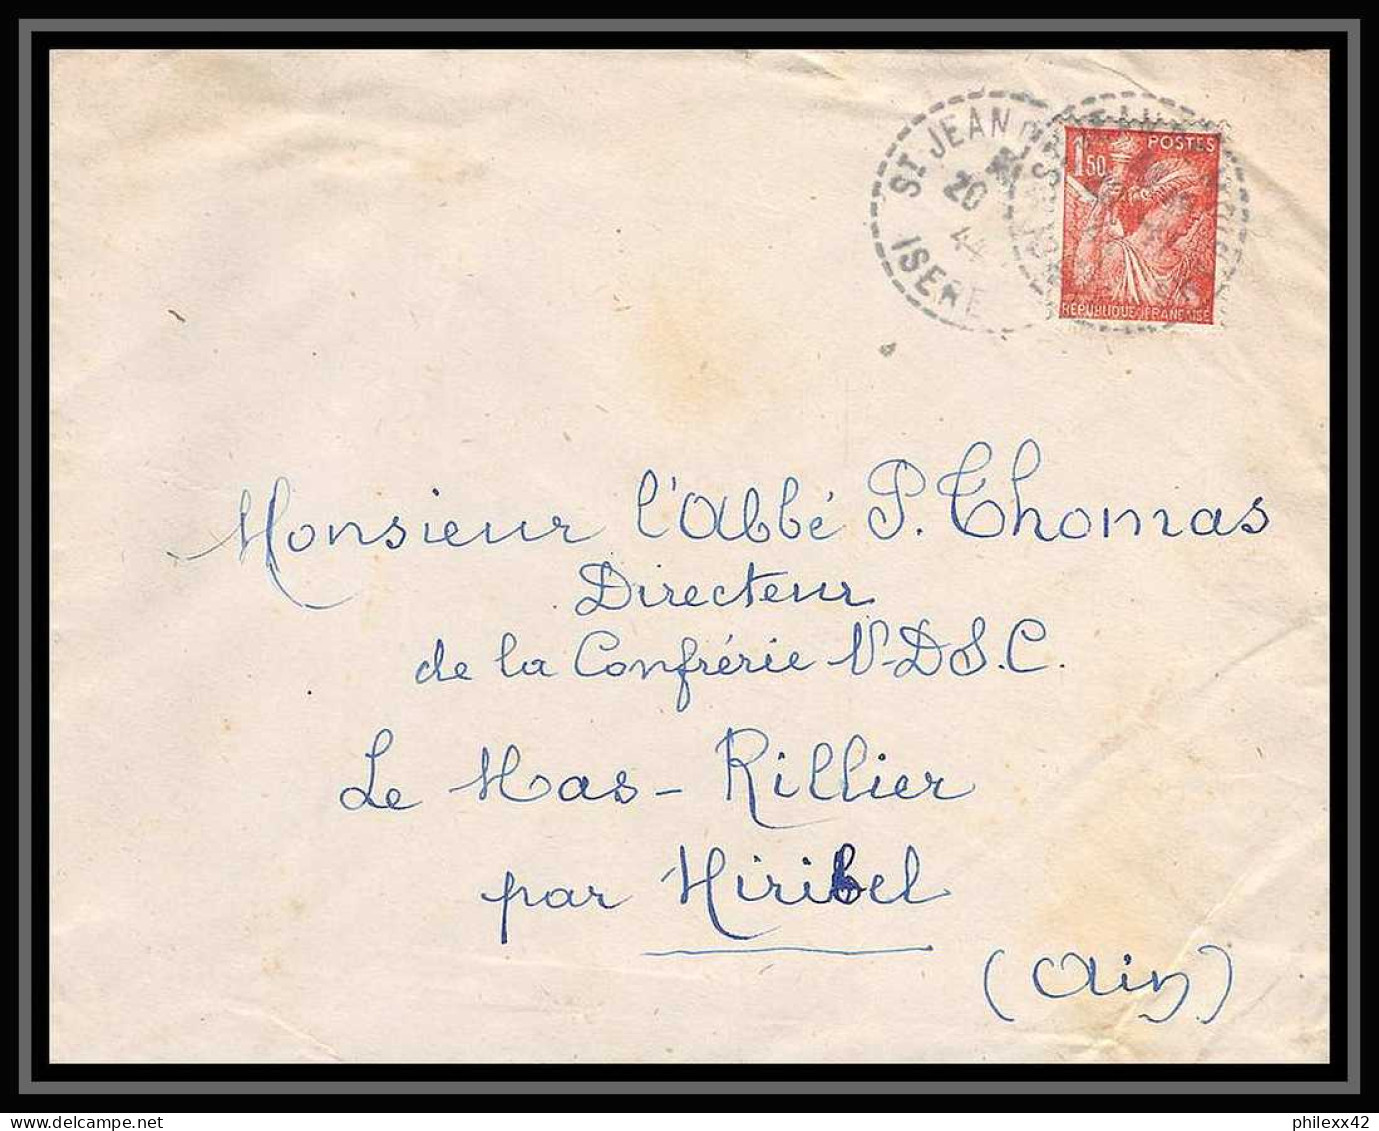 ST JEAN D
20
44
ISERE
1F50
POSTES
REPUBLIQUE FRANCAISE
Monsieur l'Abbé P. Thomas
Directeur
de la Confrérie N-D S.C.
Le Mas-Rillier
par Miribel
(Ain)
philexx42